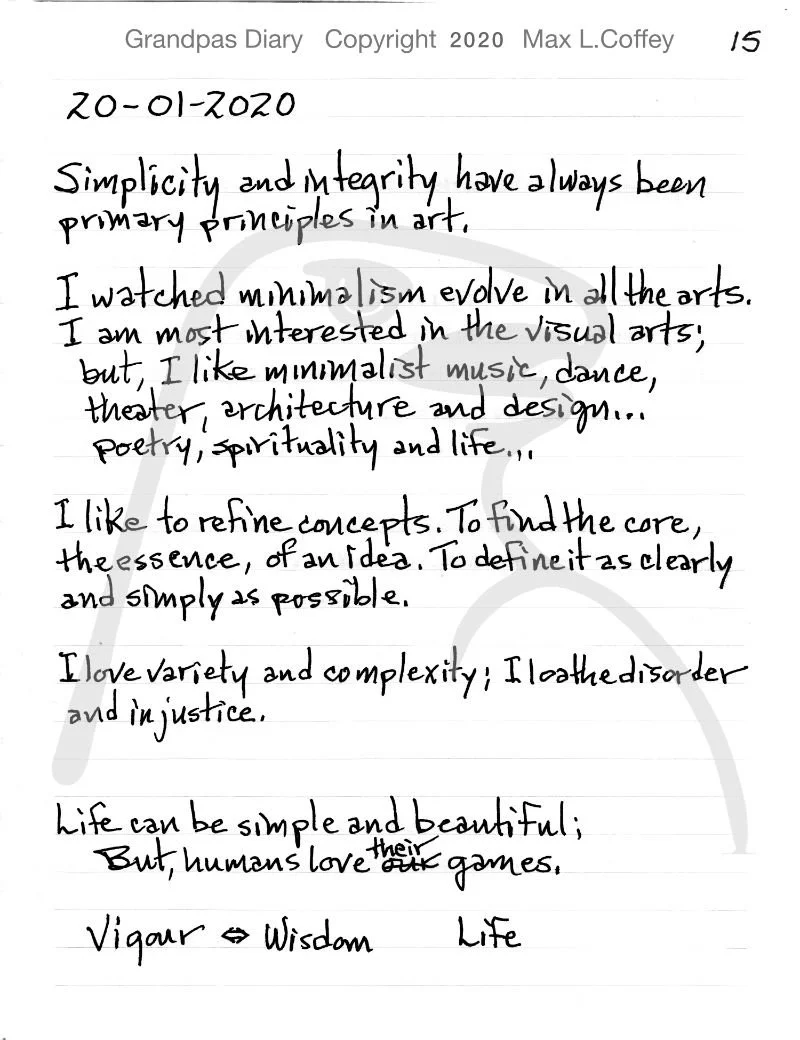 Grandpas Diary Copyright 2020 Max L.Coffey 15
20-01-2020
Simplicity and integrity have always been
primary principles in art.
I watched minimalism evolve in all the arts.
I am most interested in the visual arts;
but, I like minimalist music, dance,
theater, architecture and design...
poetry, spirituality and life...
I like to refine concepts. To find the core,
the essence, of an idea. To define it as clearly
and simply as possible.
I love variety and complexity; I loathe disorder
and injustice.
Life can be simple and beautiful;
But, humans love their ~~our~~ games.
Vigour ⇔ Wisdom Life